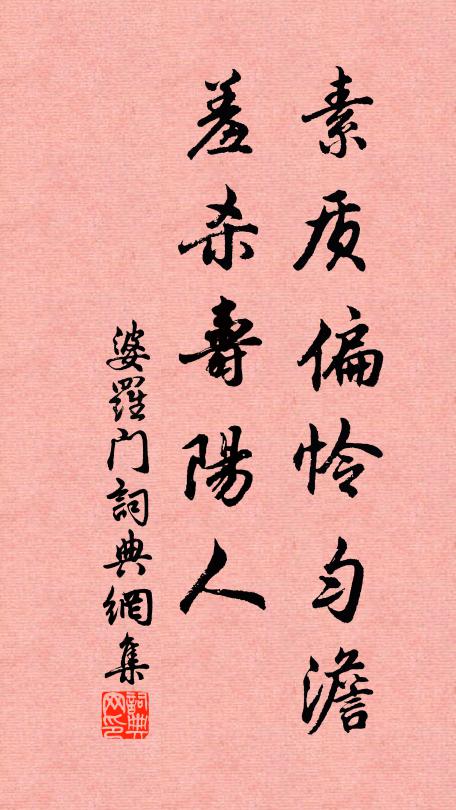 素质偏怜匀澹
羞杀壽陽人
婆羅门詞典網集
詞典网印